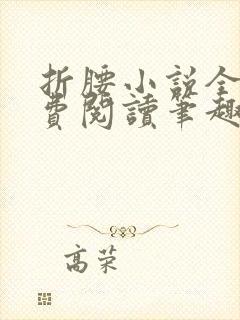 折腰小説全
費閱讀筆趣
高荣